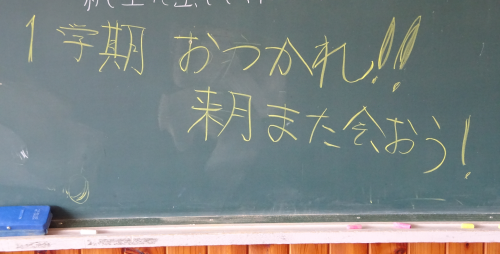 1学期 おつかれ!!
来月また会おう!